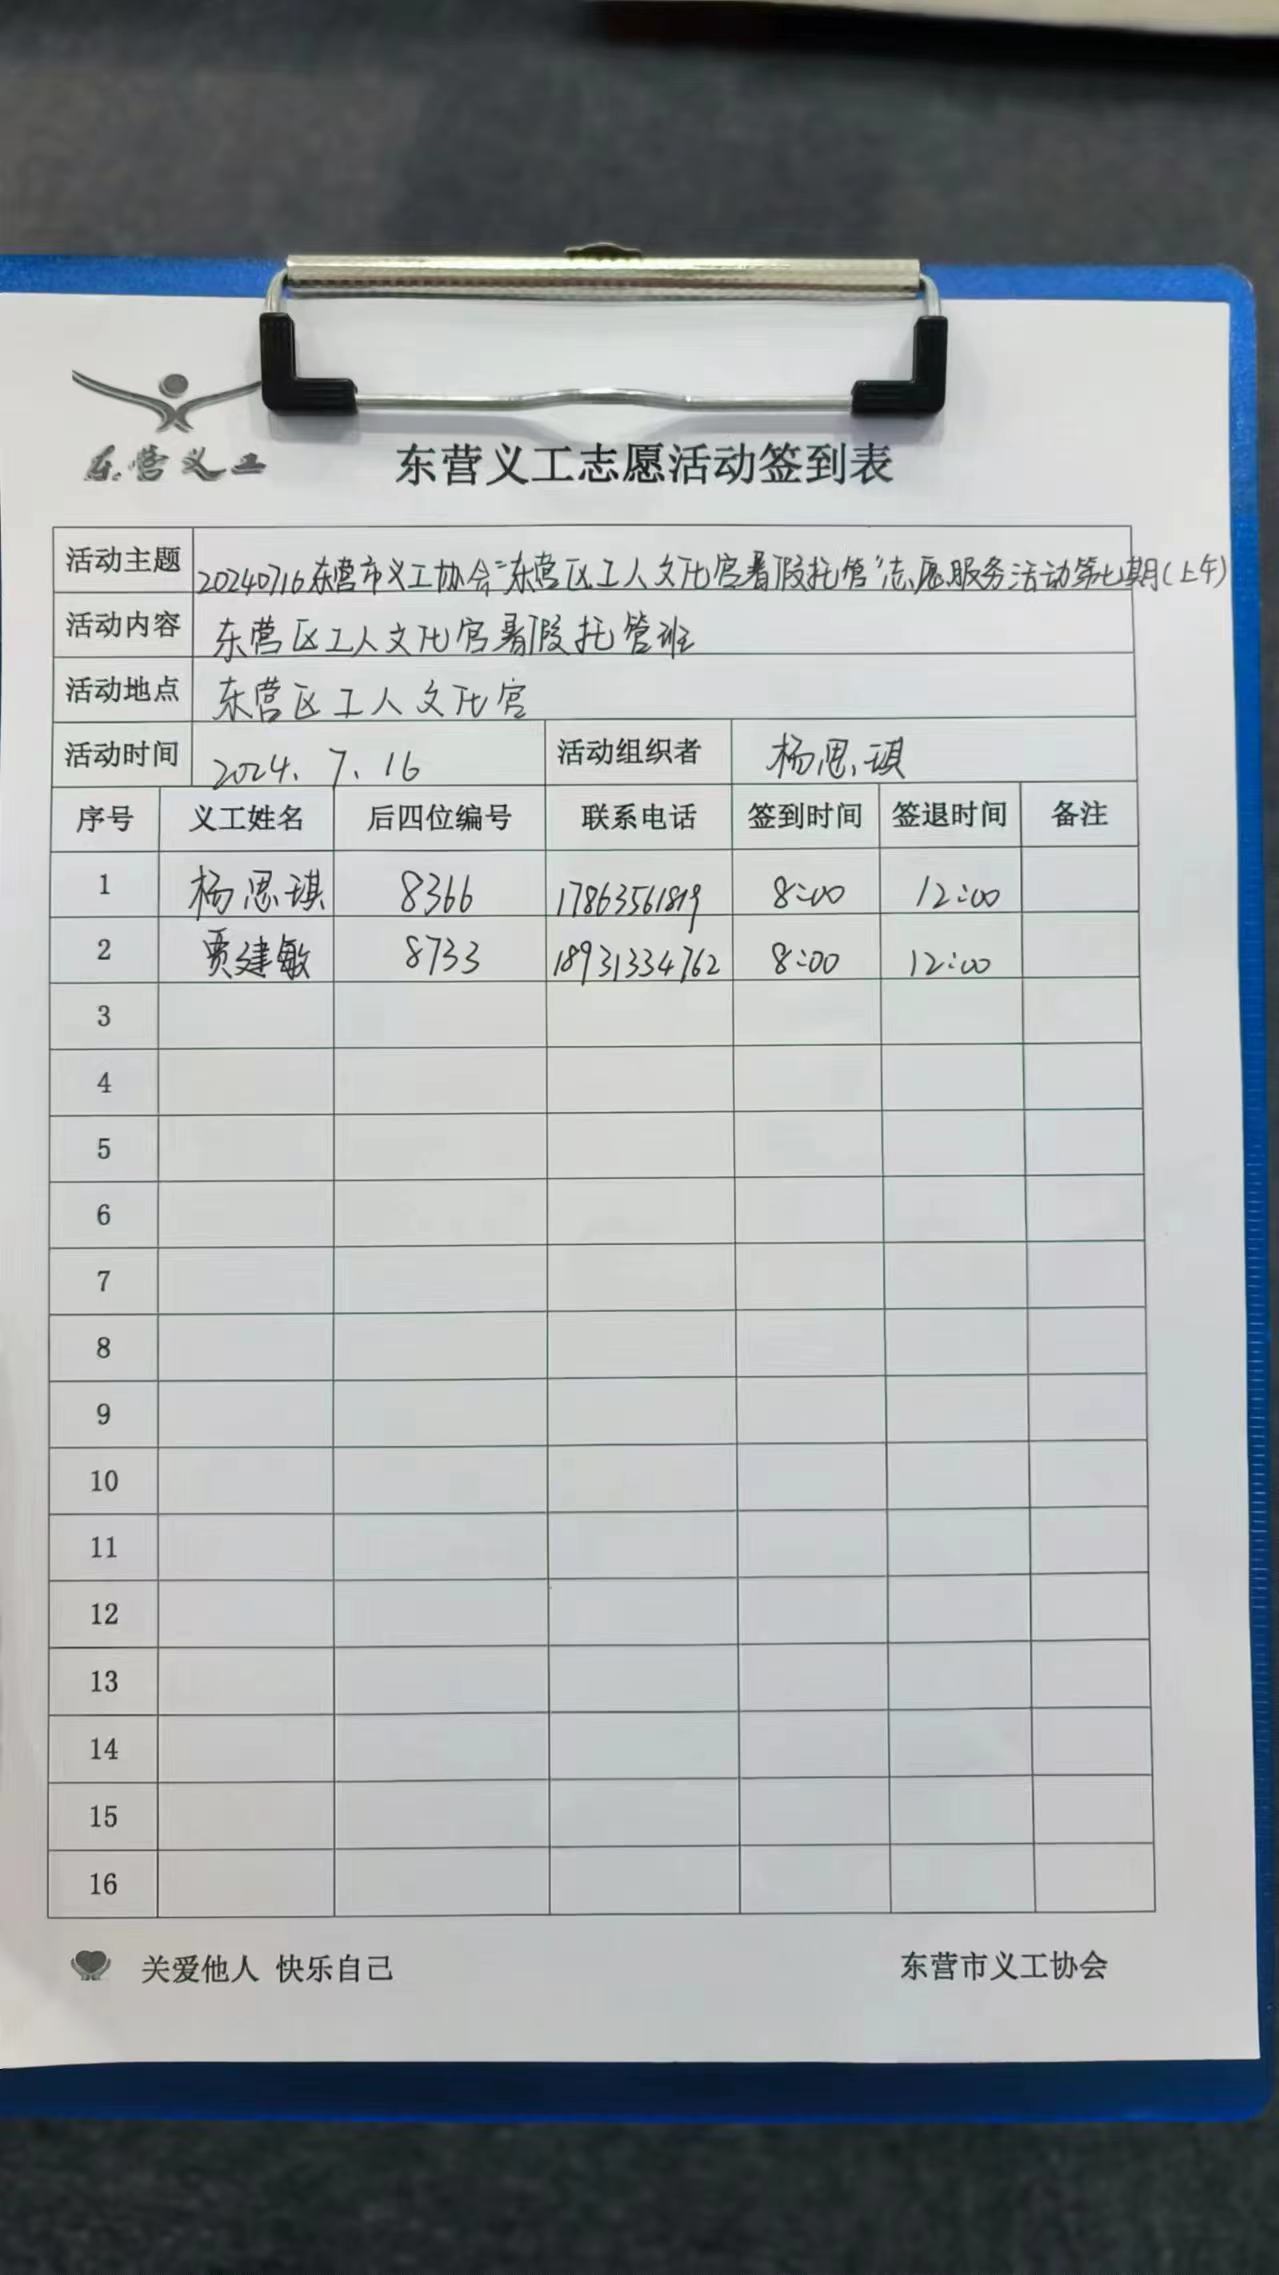 东营义工
东营义工志愿活动签到表
活动主题 20240716东营市义工协会“东营区工人文化宫暑假托管”志愿服务活动第七期(上午)
活动内容 东营区工人文化宫暑假托管班
活动地点 东营区工人文化宫
活动时间 2024.7.16 活动组织者 杨思琪
序号 义工姓名 后四位编号 联系电话 签到时间 签退时间 备注
1 杨思琪 8366 17863561819 8:00 12:00
2 贾建敏 8733 18931334762 8:00 12:00
3
4
5
6
7
8
9
10
11
12
13
14
15
16
关爱他人 快乐自己 东营市义工协会